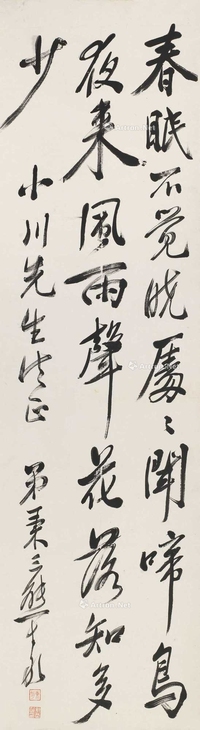 春眠不觉晓处々闻啼鸟
夜来風雨聲花落知多
少
小川先生法正
弟秉三熊